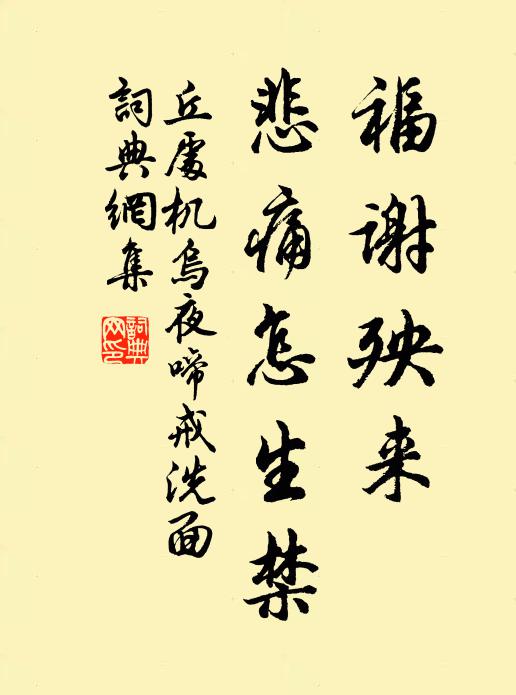 福谢殃来
悲痛怎生禁
丘處机烏夜啼戒洗面
詞典網集
詞典网印